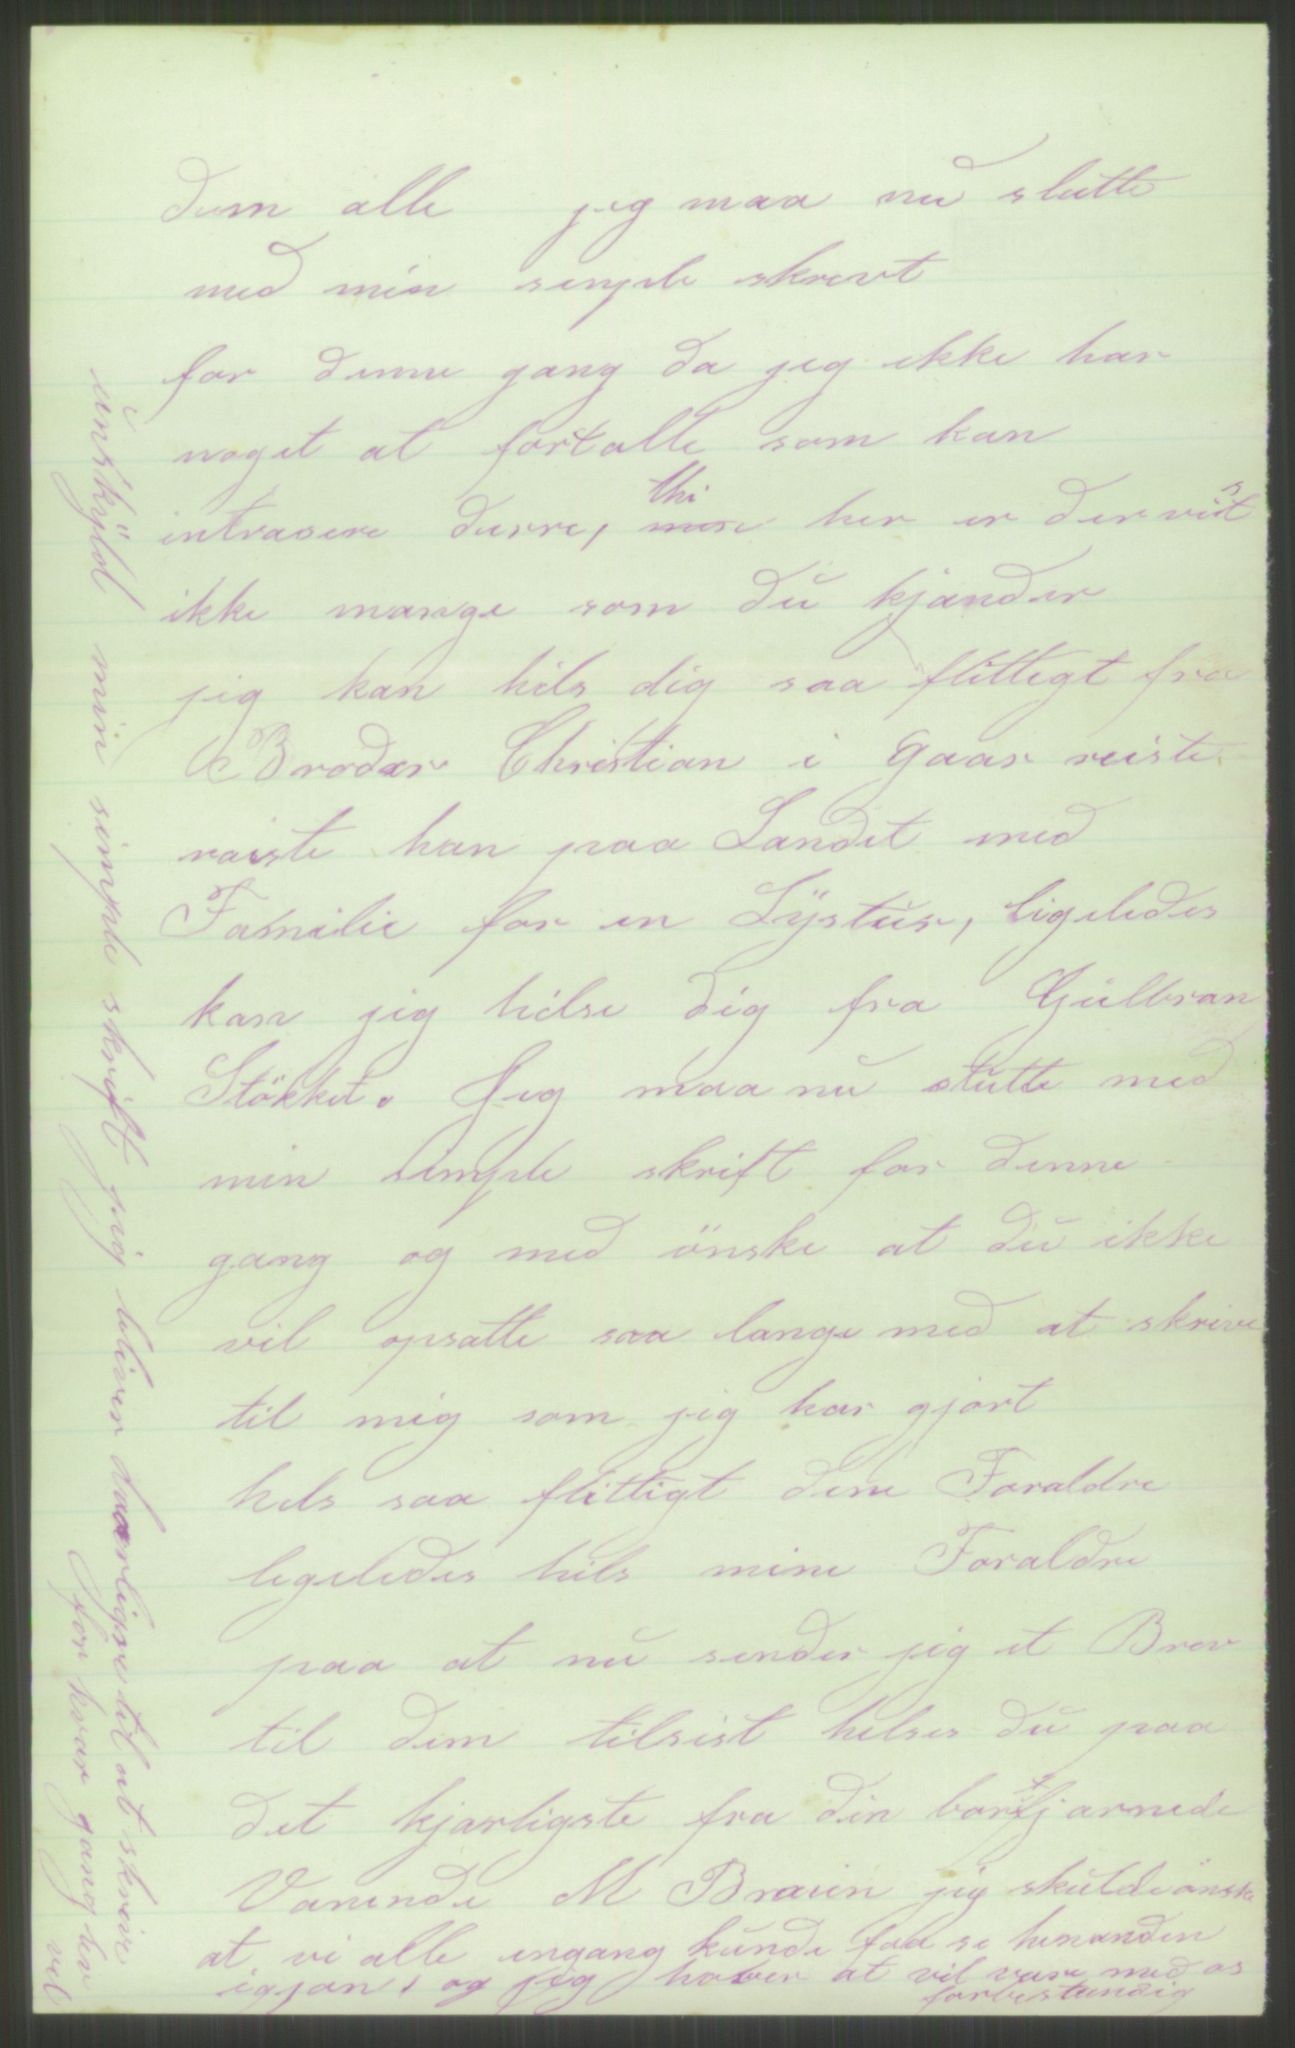 dem alle jeg maa nu slutte
med min simple skrevt
for denne gang da jeg ikke har
noget at fortalle som kan
intrasere derre, thi her er der vist
ikke mange som du kjander
jeg kan hils dig saa flittegt fra
Broder Christian i gaar reiste
raiste han paa Landet med
Familie for en Lystur, ligeledes
kan jeg hilse dig fra Gulbran
Stökket. Jeg maa nu slutte med
min simple skrift for denne
gang og med önske at du ikke
vil opsatte saa lange med at skrive
til mig som jeg har gjort
hels saa flittigt dine Foraldre
legeledes hils mine Foraldre
paa at nu sender jeg et Brev
til dem tilsist helses du paa
det kjarligste fra din bortfjarnede
Vaninde M Braien jeg skulde önske
at vi alle engang kunde faa se hinanden
igjan, og jeg haaber at vil vare med os
forbestandig
undskyld min simple skrift jeg bliver daarligere til at skrive
for hvar gang lev
vel